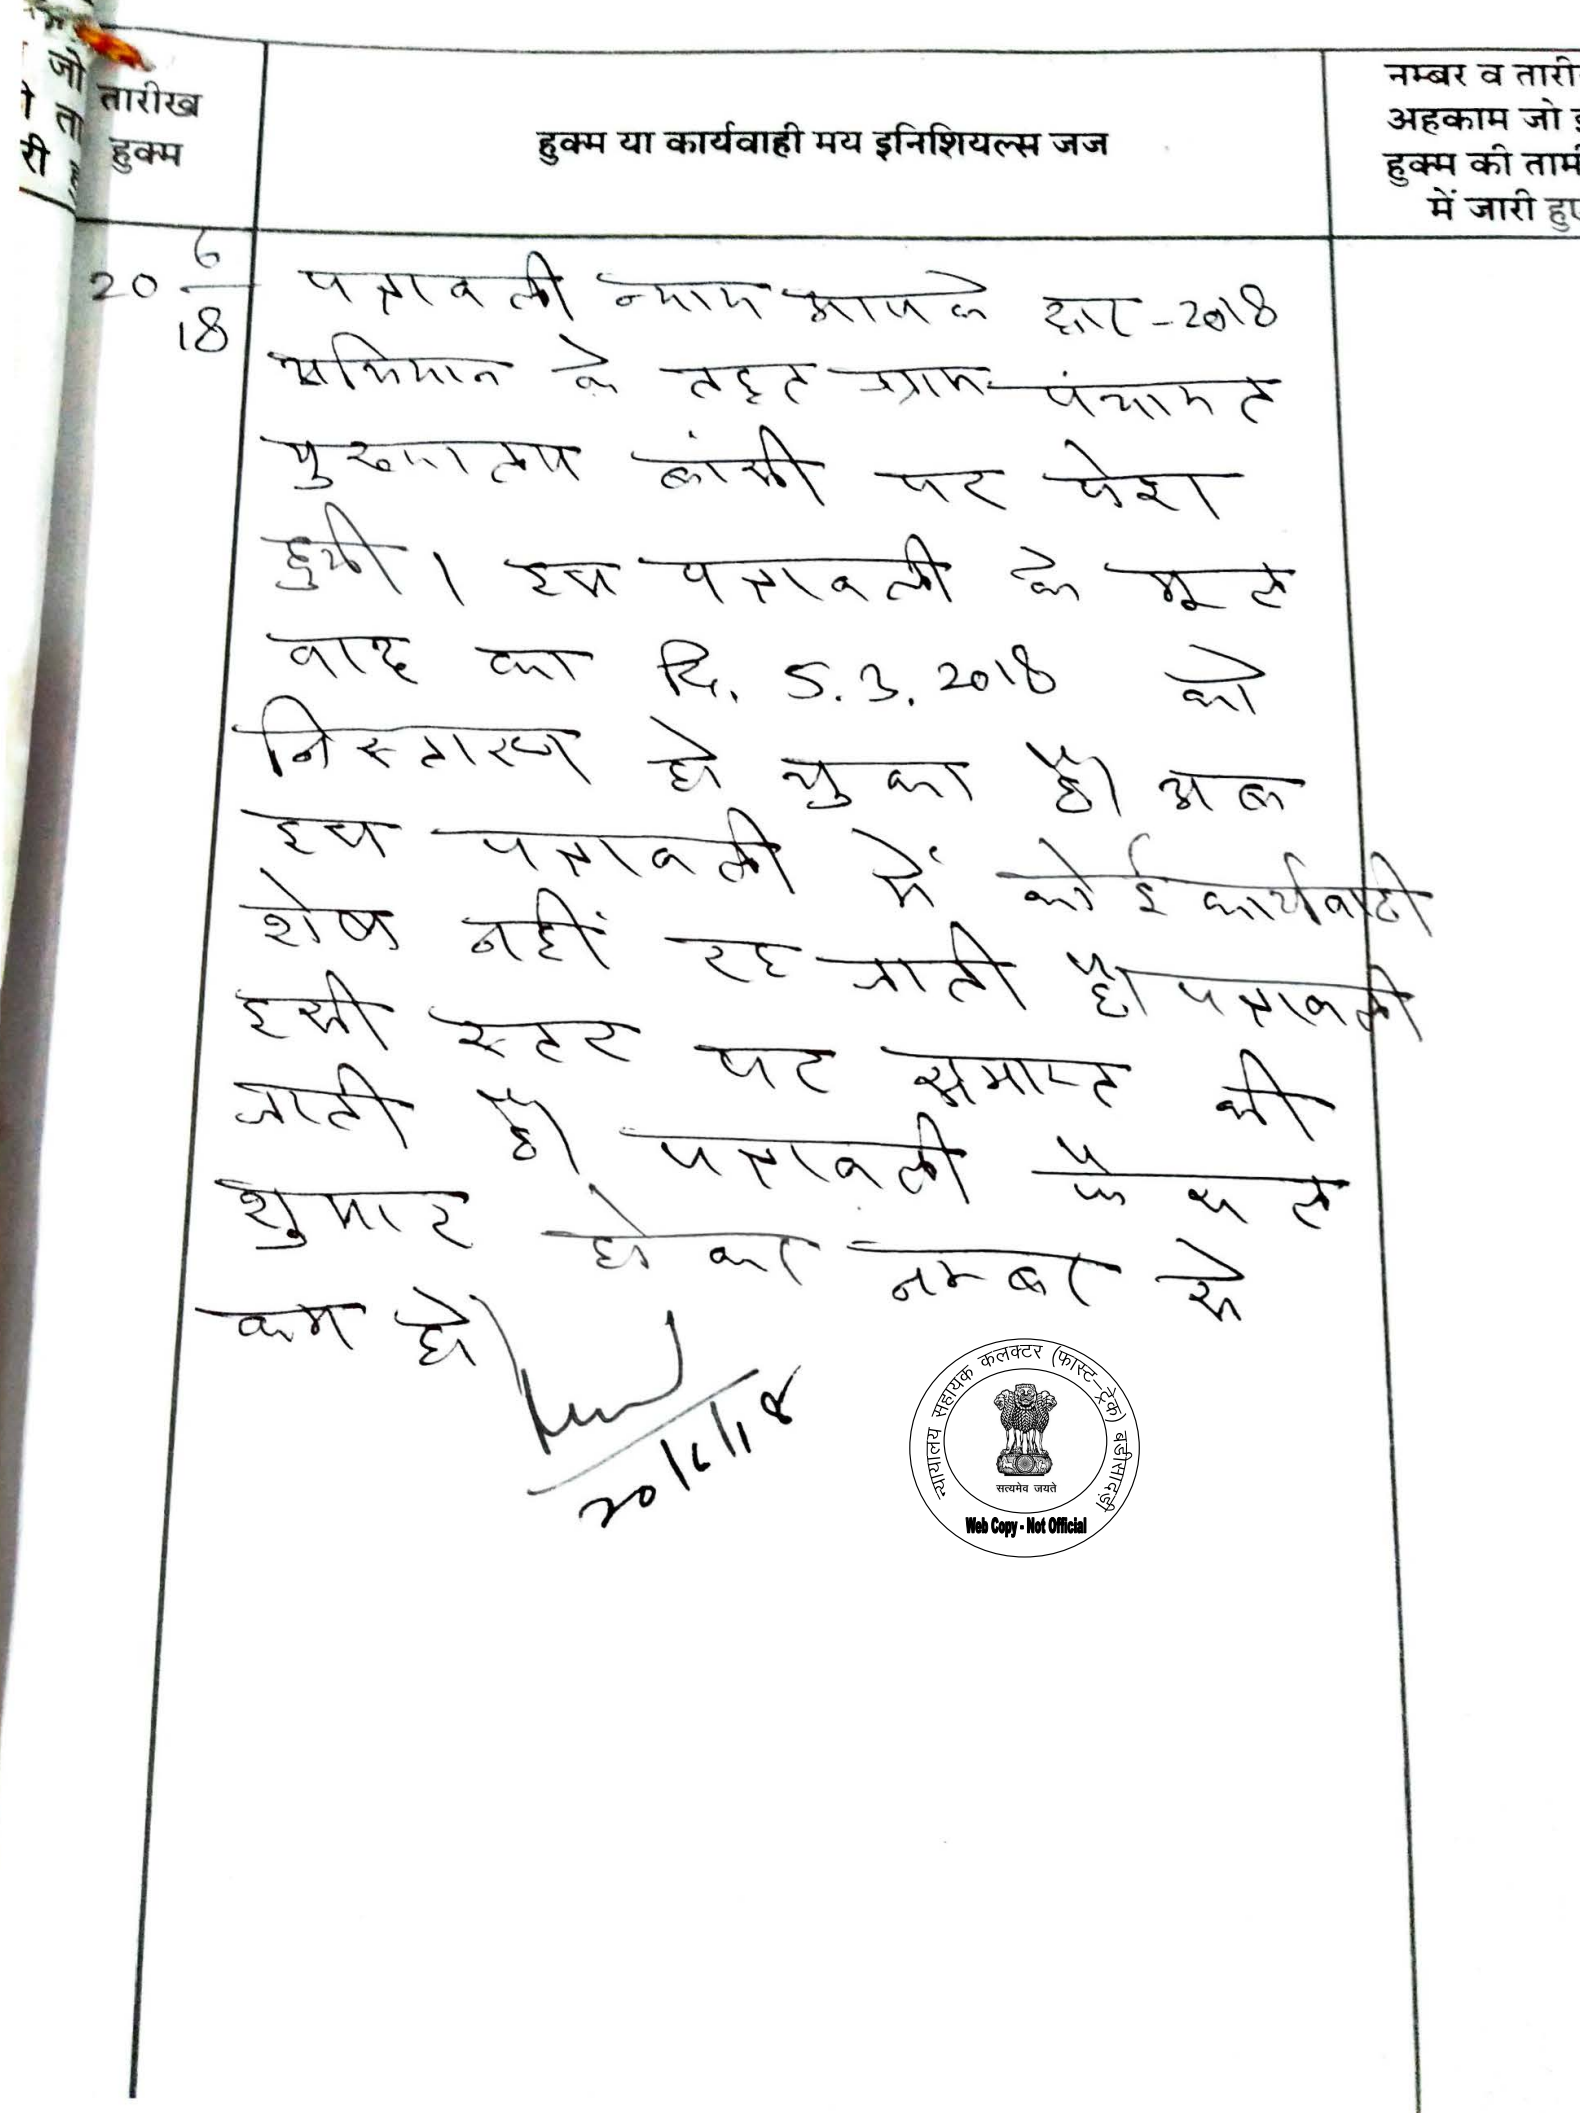 जो
ता
री
तारीख
हुक्म
हुक्म या कार्यवाही मय इनिशियल्स जज
नम्बर व तारी
अहकाम जो इ
हुक्म की तामी
में जारी हुए
20 6/18
पत्रावली न्याय आपके द्वार -2018
अभियान के तहत ग्राम पंचायत
मुख्यालय बांसी पर पेश
हुयी। इस पत्रावली के मूल
वाद का दि. 5.3.2018 को
निस्तारण हो चुका है। अब
इस पत्रावली में कोई कार्यवाही
शेष नहीं रह जाती है। पत्रावली
इसी स्टर पर समाप्त की
जाती है। पत्रावली फैसल
शुमार होकर नम्बर से
कम हो।
20/6/18
न्यायालय सहायक कलक्टर (फास्ट-ट्रेक) बडीसादड़ी
सत्यमेव जयते
Web Copy - Not Official